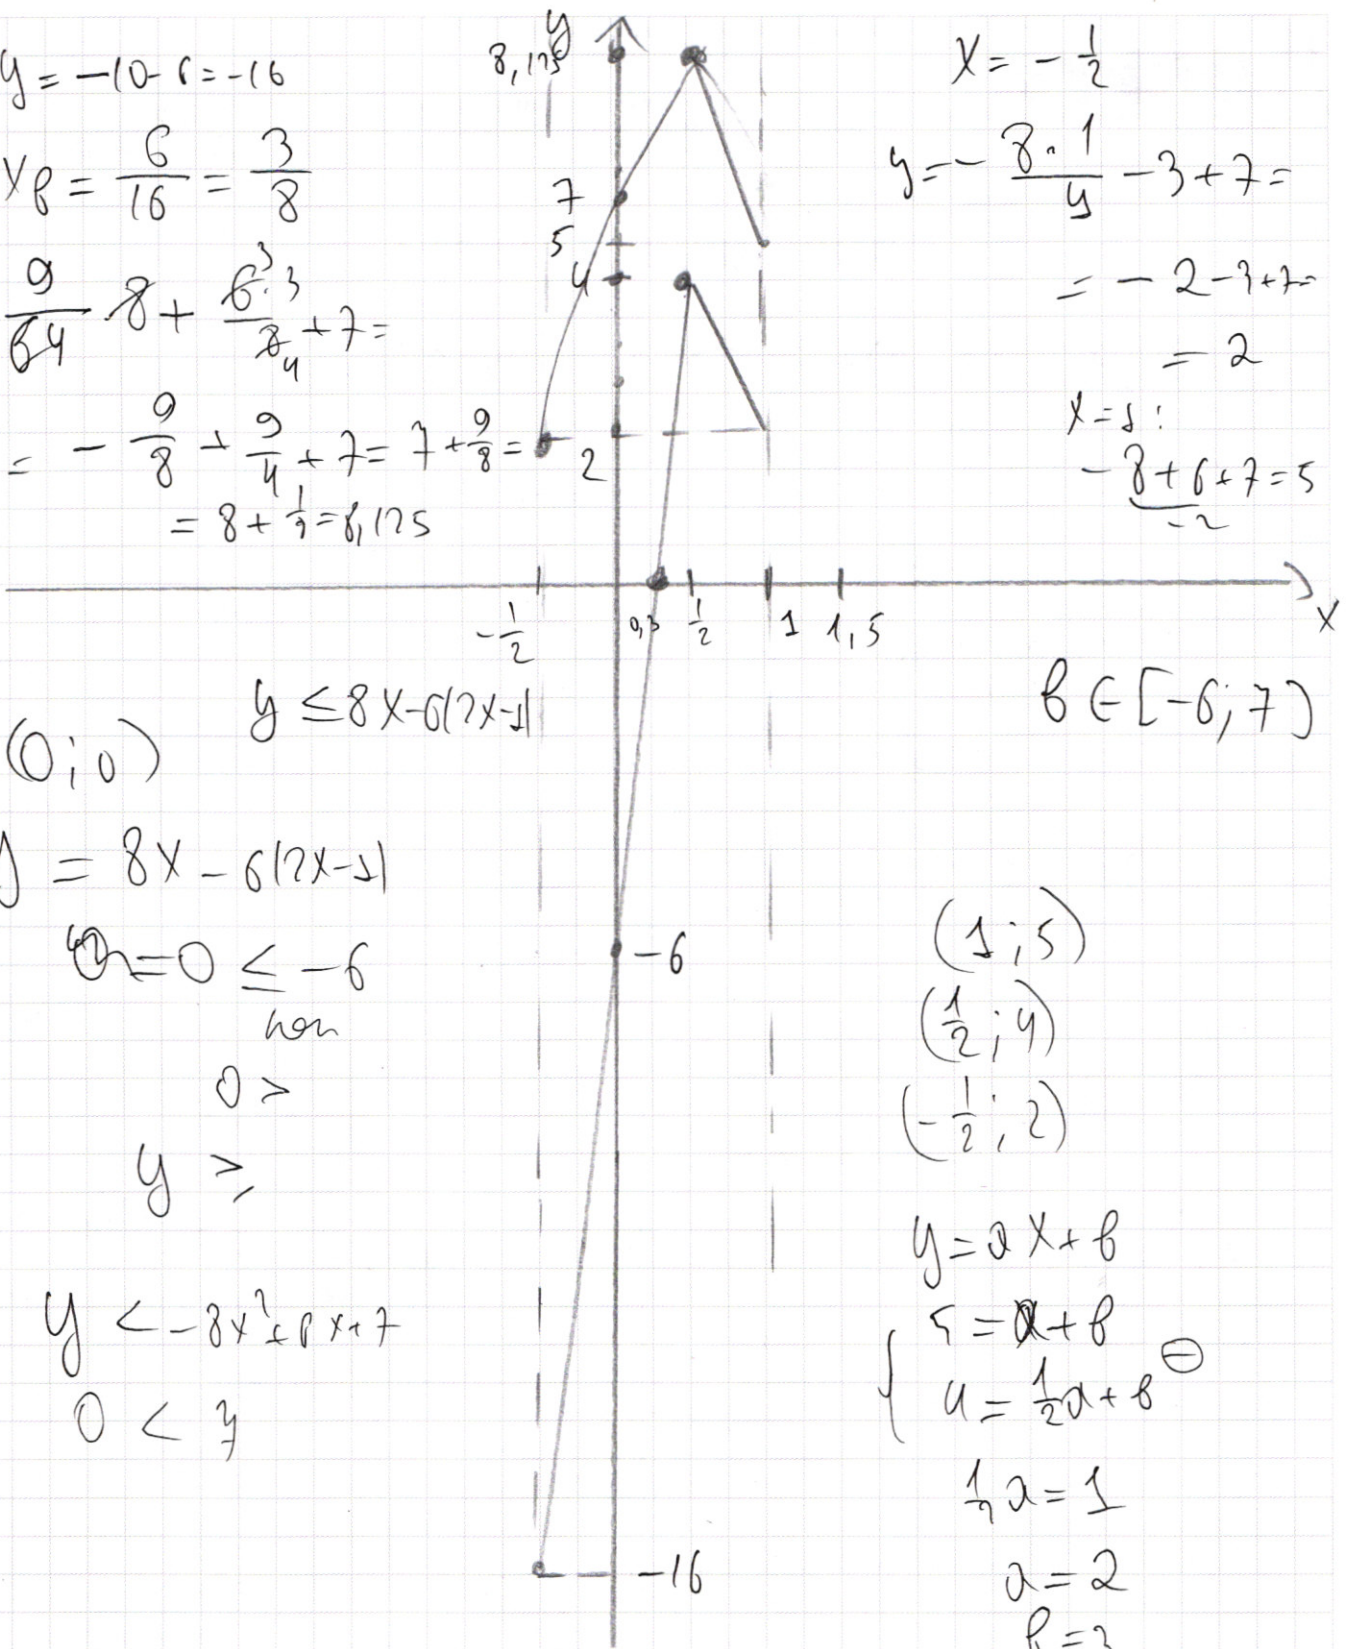 y = -10-6 = -16
xв = 6/16 = 3/8
9/64 · 8 + 6·3/8 + 7 =
3
4
= - 9/8 + 9/4 + 7 = 7 + 9/8 =
= 8 + 1/8 = 8,125
y
8,125
7
5
4
2
-1/2
0,3
1/2
1
1,5
x
-6
-16
x = - 1/2
y = - 8·1/4 - 3 + 7 =
= - 2 - 3 + 7 =
= 2
x = 1 :
- 8 + 6 + 7 = 5
-2
y ≤ 8x-6|2x-1|
(0;0)
y = 8x - 6|2x-1|
0 ≤ -6
0 >
y ≥
y < -8x²+6x+7
0 < 7
в ∈ [-6; 7)
(1; 5)
(1/2; 4)
(-1/2; 2)
y = ax + в
5 = a + в
4 = 1/2a + в
⊖
1/2 a = 1
a = 2
в = 3